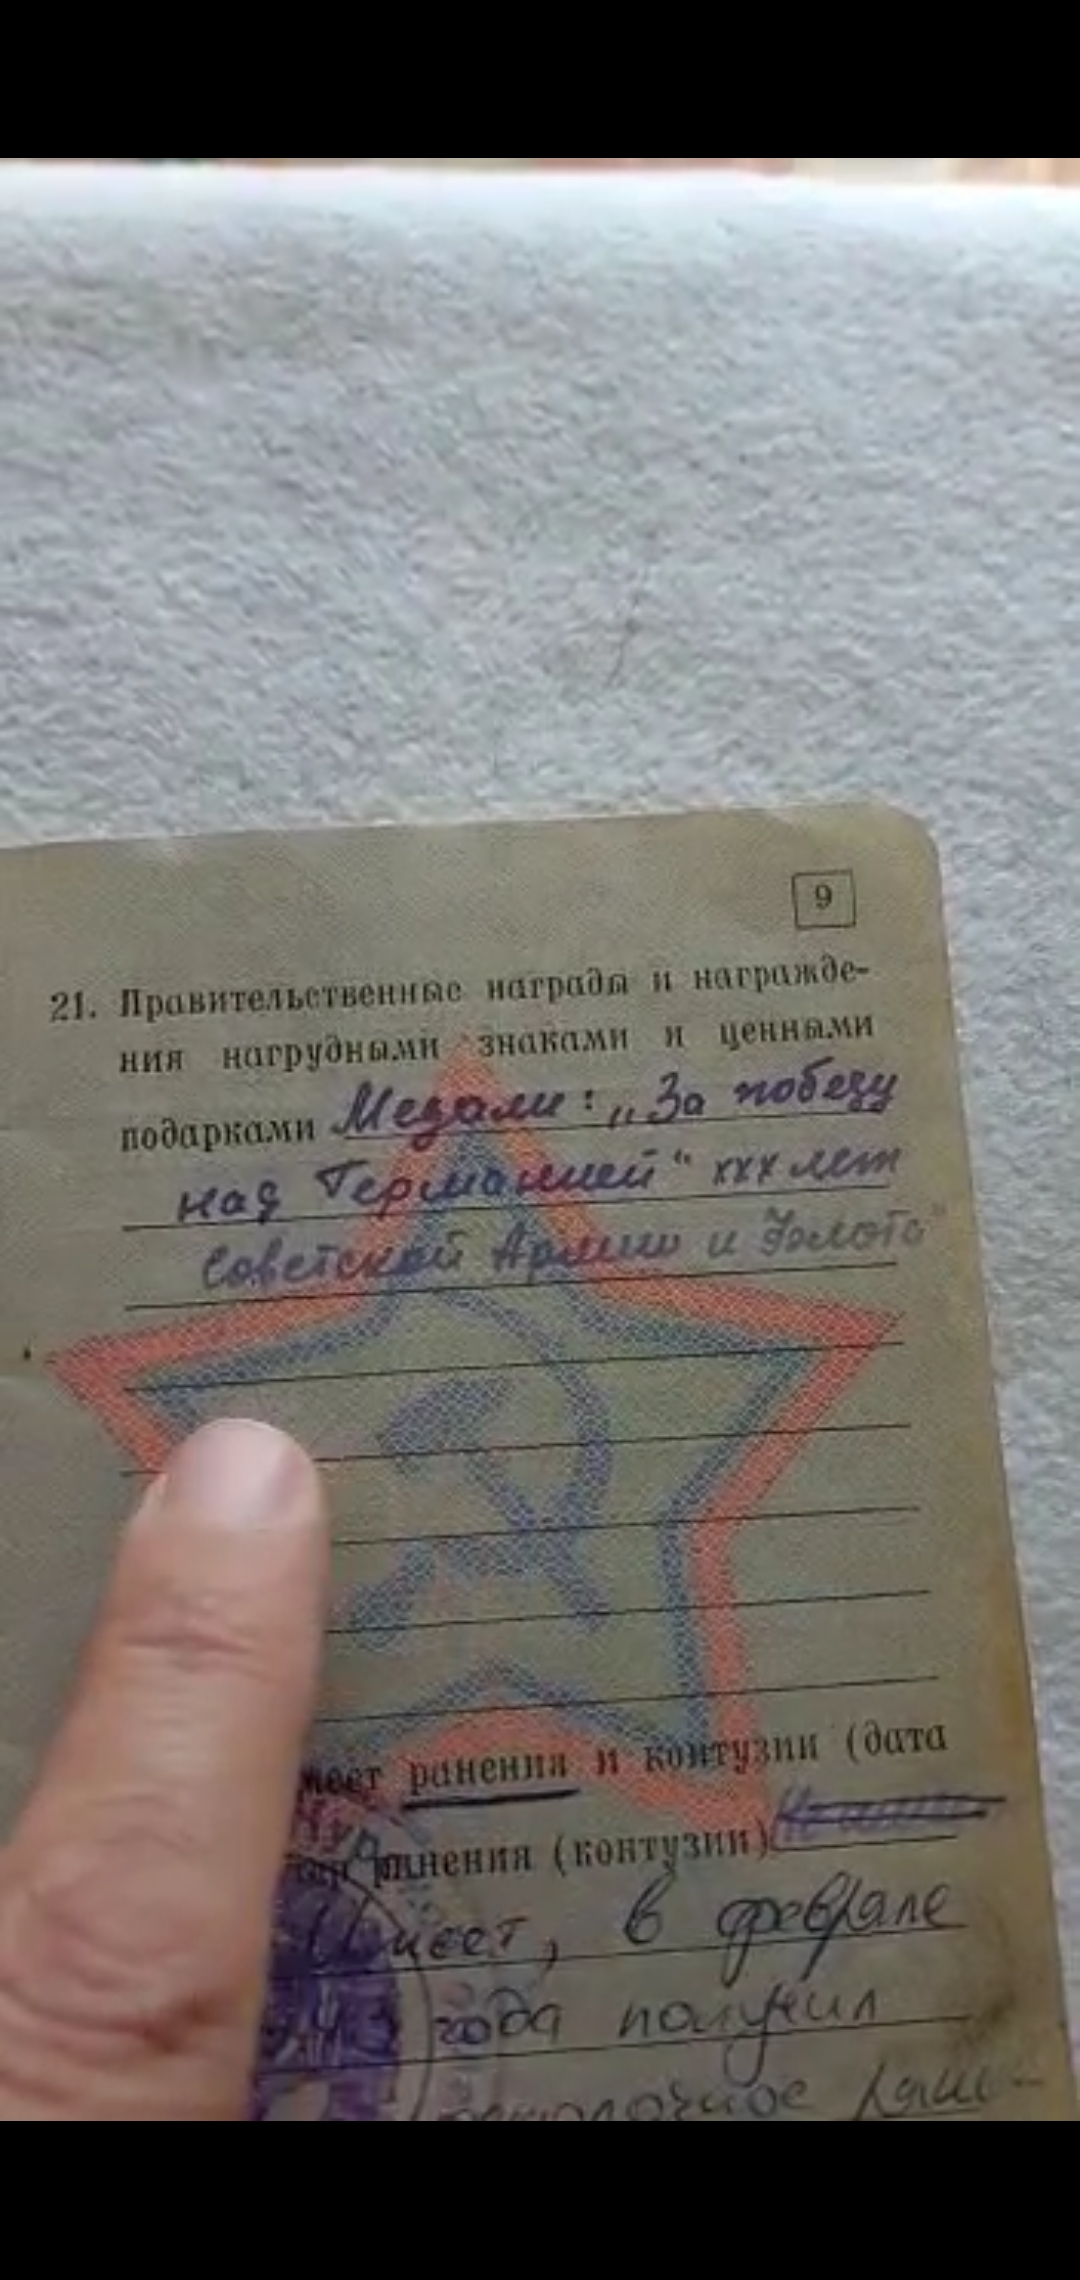 9
21. Правительственные награды и награжде-
ния нагрудными знаками и ценными
подарками Медали: „За победу
над Германией“ ххх лет
Советской Армии и Флота"
меет ранения и контузии (дата
ранения (контузии)
Имеет, в феврале
года получил